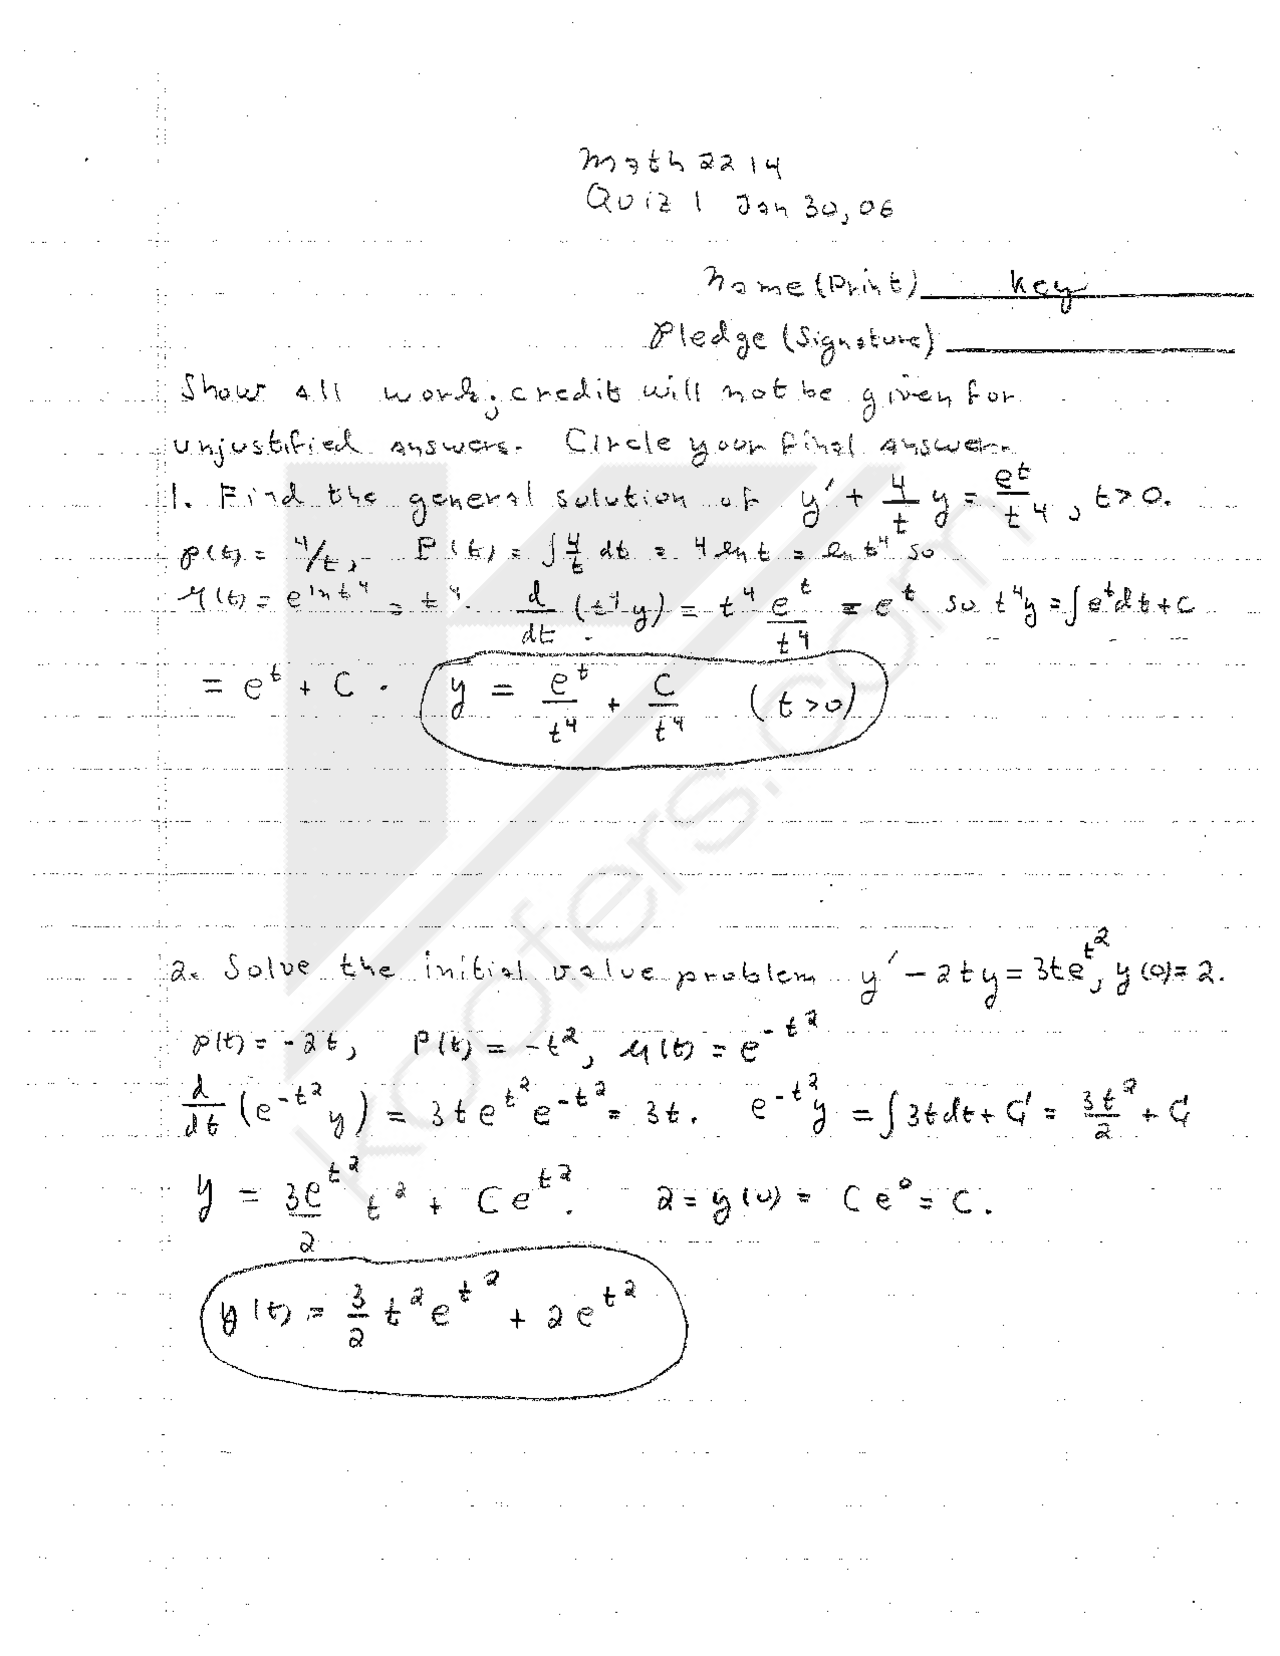 Math 2214
Quiz 1 Jan 30, 06
Name (Print) Key
Pledge (Signature)
Show all work; credit will not be given for
unjustified answers. Circle your final answer.
1. Find the general solution of y' + 4/t y = e^t/t^4, t>0.
p(t) = 4/t, P(t) = ∫ 4/t dt = 4 ln t = ln t^4 so
μ(t) = e^{ln t^4} = t^4. d/dt (t^4 y) = t^4 e^t/t^4 = e^t so t^4 y = ∫ e^t dt + C
= e^t + C. y = e^t/t^4 + C/t^4 (t>0)
2. Solve the initial value problem y' - 2ty = 3te^{t^2}, y(0) = 2.
p(t) = -2t, P(t) = -t^2, μ(t) = e^{-t^2}
d/dt (e^{-t^2} y) = 3te^{t^2} e^{-t^2} = 3t. e^{-t^2} y = ∫ 3t dt + C = 3t^2/2 + C
y = 3e^{t^2}/2 t^2 + Ce^{t^2}. 2 = y(0) = Ce^0 = C.
y(t) = 3/2 t^2 e^{t^2} + 2e^{t^2}
koofers.com